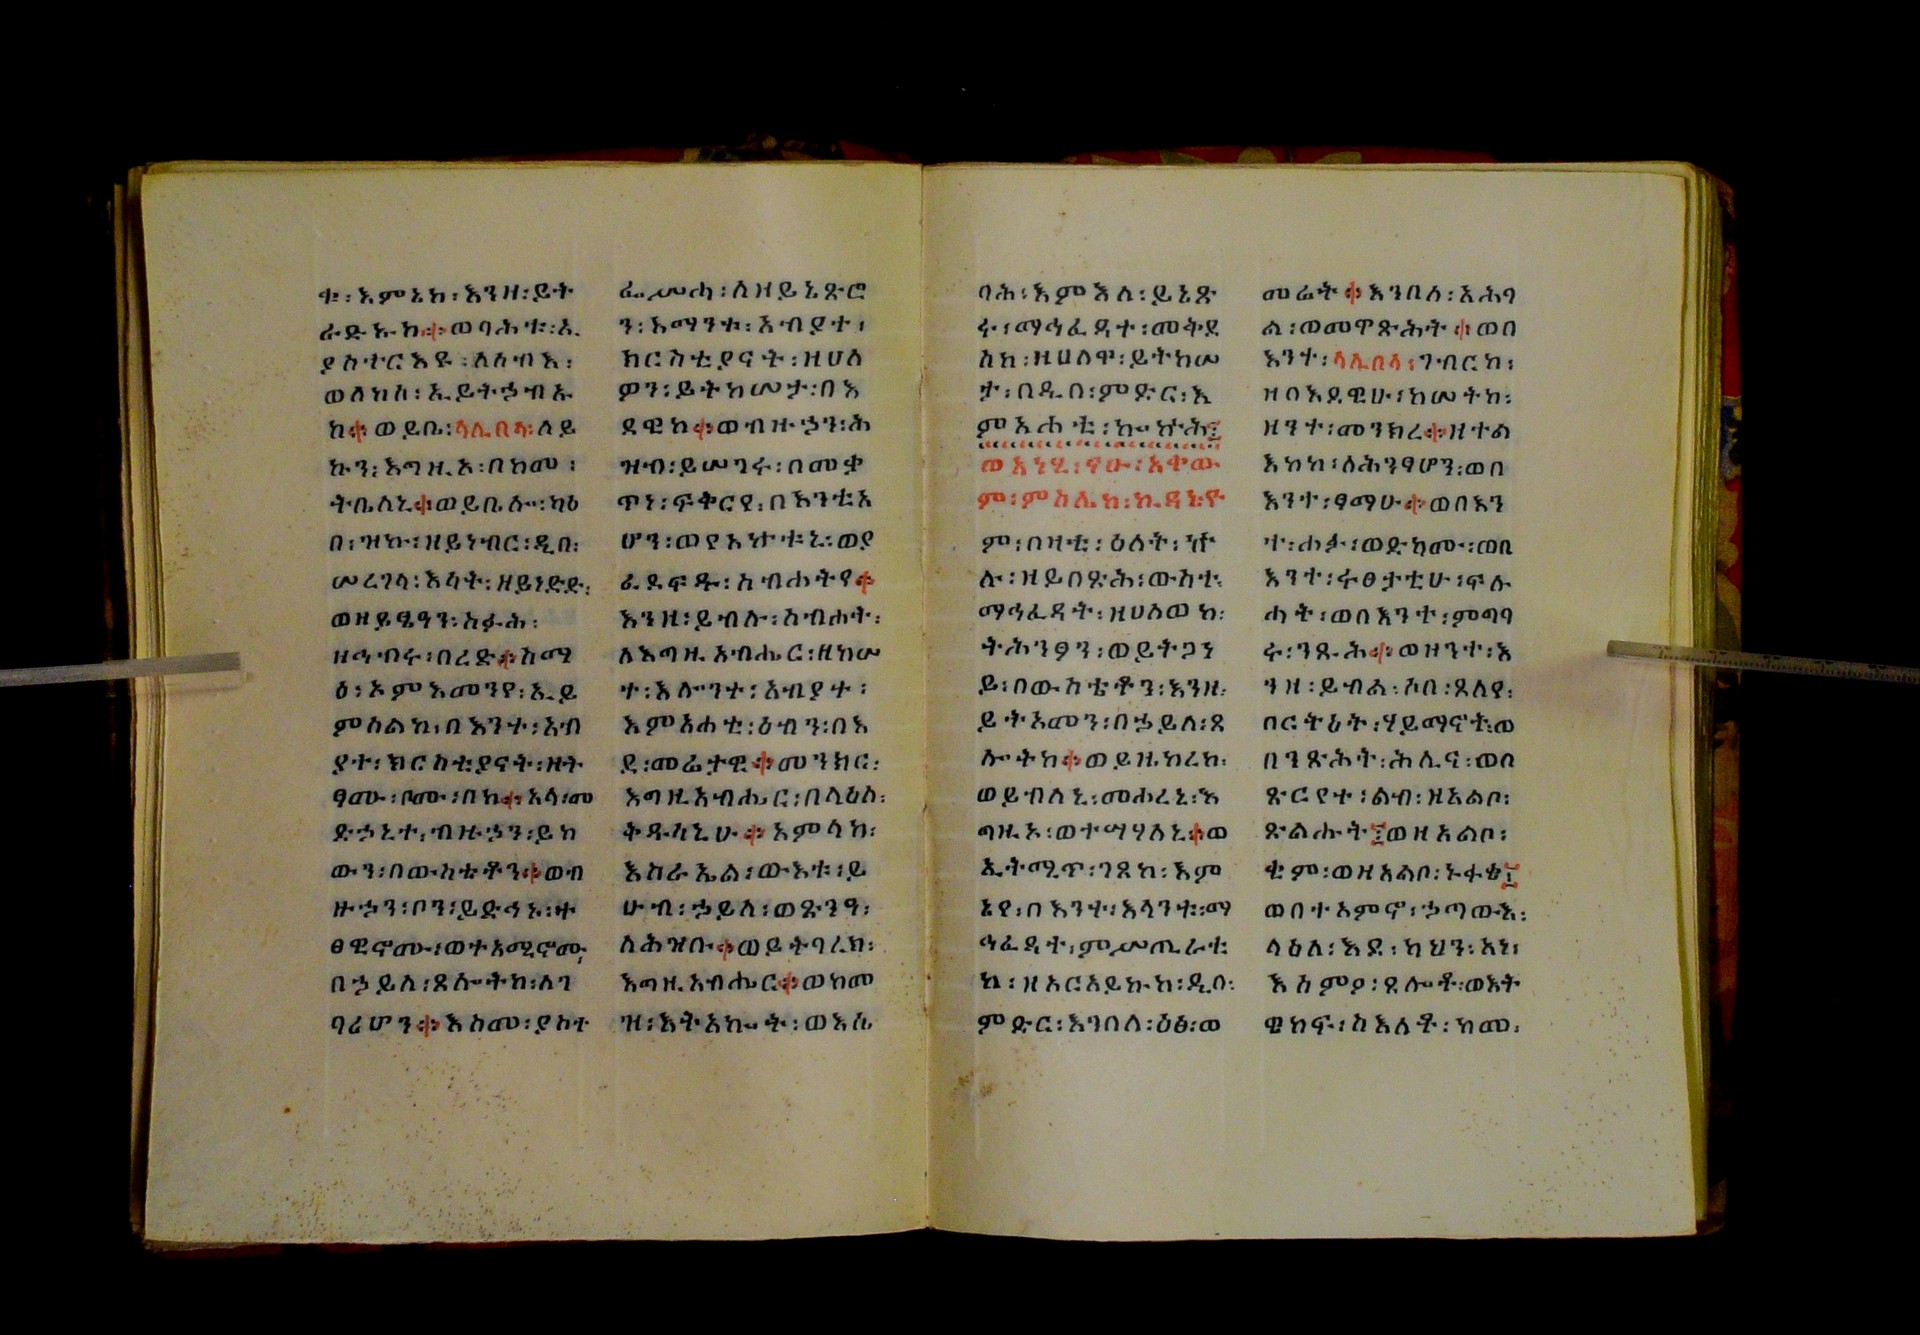 ቱ፡እምኔከ፡እንዘ፡ይት
ራድኡከ፨ወባሕቱ፡ኢ
ያስተርእዩ፡ለሰብእ፡
ወለከሰ፡ኢይትኃብኡ
ከ፨ወይቤ፡ላሊበላ፡ለይ
ኩን፡እግዚኦ፡በከመ፡
ትቤለኒ፨ወይቤሎ፡ካዕ
በ፡ዝኩ፡ዘይነብር፡ዲበ፡
ሠረገላ፡እሳት፡ዘይነድድ፡
ወዘይፄዓን፡አፉሕ፡
ዘኅብሩ፡በረድ፨አማ
ዕ፡ኦምእመንየ፡ኢይ
ምሰልከ፡በእንተ፡አብ
ያተ፡ክርስቲያናት፡ዘት
ፃሙ፡ቦሙ፡በከ፨አላ፡መ
ድኃኒተ፡ብዙኃን፡ይከ
ውን፡በውስቴቶን፨ወብ
ዙኃን፡ቦን፡ይድኅኑ፡ቀ
ፀዊኖሙ፡ወተአሚኖሙ
በኃይለ፡ጸሎትከ፡ለገ
ባሪሆን፨እስመ፡ያስተ
ፌሥሓ፡ለዘይኔጽሮ
ን፡እማንቱ፡አብያተ፡
ክርስቲያናት፡ዘሀለ
ዎን፡ይትከሠታ፡በእ
ደዊከ፨ወብዙኃን፡ሕ
ዝብ፡ይሠገሩ፡በመቃ
ጥነ፡ፍቅርየ፡በእንቲአ
ሆን፡ወየአኵቱኒ፡ወያ
ፈደፍዱ፡ስብሐትየ፨
እንዘ፡ይብሉ፡ስብሐት፡
ለእግዚአብሔር፡ዘከሠ
ተ፡እሎንተ፡አብያተ፡
እምአሐቲ፡ዕብን፡በእ
ደ፡መሬታዊ፨መንክር፡
እግዚአብሔር፡በላዕለ፡
ቅዱሳኒሁ፨አምላከ፡
እስራኤል፡ውእቱ፡ይ
ሁብ፡ኃይለ፡ወጽንዓ፡
ለሕዝቡ፨ወይትባረክ፡
እግዚአብሔር፨ወከመ
ዝ፡እትአኰት፡ወእሴ
ባሕ፡እምእለ፡ይኔጽ
ሩ፡ማኅፈዳተ፡መቅደ
ስከ፡ዘሀለዋ፡ይትከሠ
ታ፡በዲበ፡ምድር፡እ
ምአሐቲ፡ኰኵሕ፤
ወአነሂ፡ኖሁ፡አቀው
ም፡ምስሌከ፡ኪዳኑየ
ም፡በዛቲ፡ዕለት፡ኵ
ሉ፡ዘይበጽሕ፡ውስተ፡
ማኅፈዳት፡ዘሀለወከ፡
ትሕንፆን፡ወይትጋነ
ይ፡በውስቴቶን፡እንዘ፡
ይትአመን፡በኃይለ፡ጸ
ሎትከ፨ወይዜከረከ፡
ወይብለኒ፡መሐረኒ፡እ
ግዚኦ፡ወተሣሃለኒ፨ወ
ኢትሚጥ፡ገጸከ፡እም
ኔየ፡በእንተ፡እላንቱ፡ማ
ኅፈዳተ፡ምሥጢራቲ
ከ፡ዘአርአይኩከ፡ዲበ፡
ምድር፡እንበለ፡ዕፅ፡ወ
መሬት፨እንበለ፡አሕባ
ል፡ወመዋጽሕት፨ወበ
እንተ፡ላሊበላ፡ገብርከ፡
ዘበእደዊሁ፡ከሠትከ፡
ዘንተ፡መንክረ፨ዘተል
እከከ፡ለሕንፃሆን፡ወበ
እንተ፡ፃማሁ፨ወበእን
ተ፡ሐፉ፡ወድካሙ፡ወበ
እንተ፡ሩፀታቲሁ፡ፍሉ
ሐት፡ወበእንተ፡ምግባ
ሩ፡ንጹሕ፨ወዘንተ፡እ
ንዘ፡ይብል፡ኦበ፡ጸለየ፡
በርትዕት፡ሃይማኖት፡ወ
በንጽሕት፡ሕሊና፡ወበ
ጽርየተ፡ልብ፡ዘአልቦ፡
ጽልሑት፤ወዘአልቦ፡
ቂም፡ወዘአልቦ፡ኑፋቄ፤
ወበተአምኖ፡ኃጣውእ፡
ላዕለ፡እደ፡ካህን፡አነ፡
እሰምዖ፡ጸሎቶ፡ወእት
ዌከፍ፡ስእለቶ፡ከመ፡